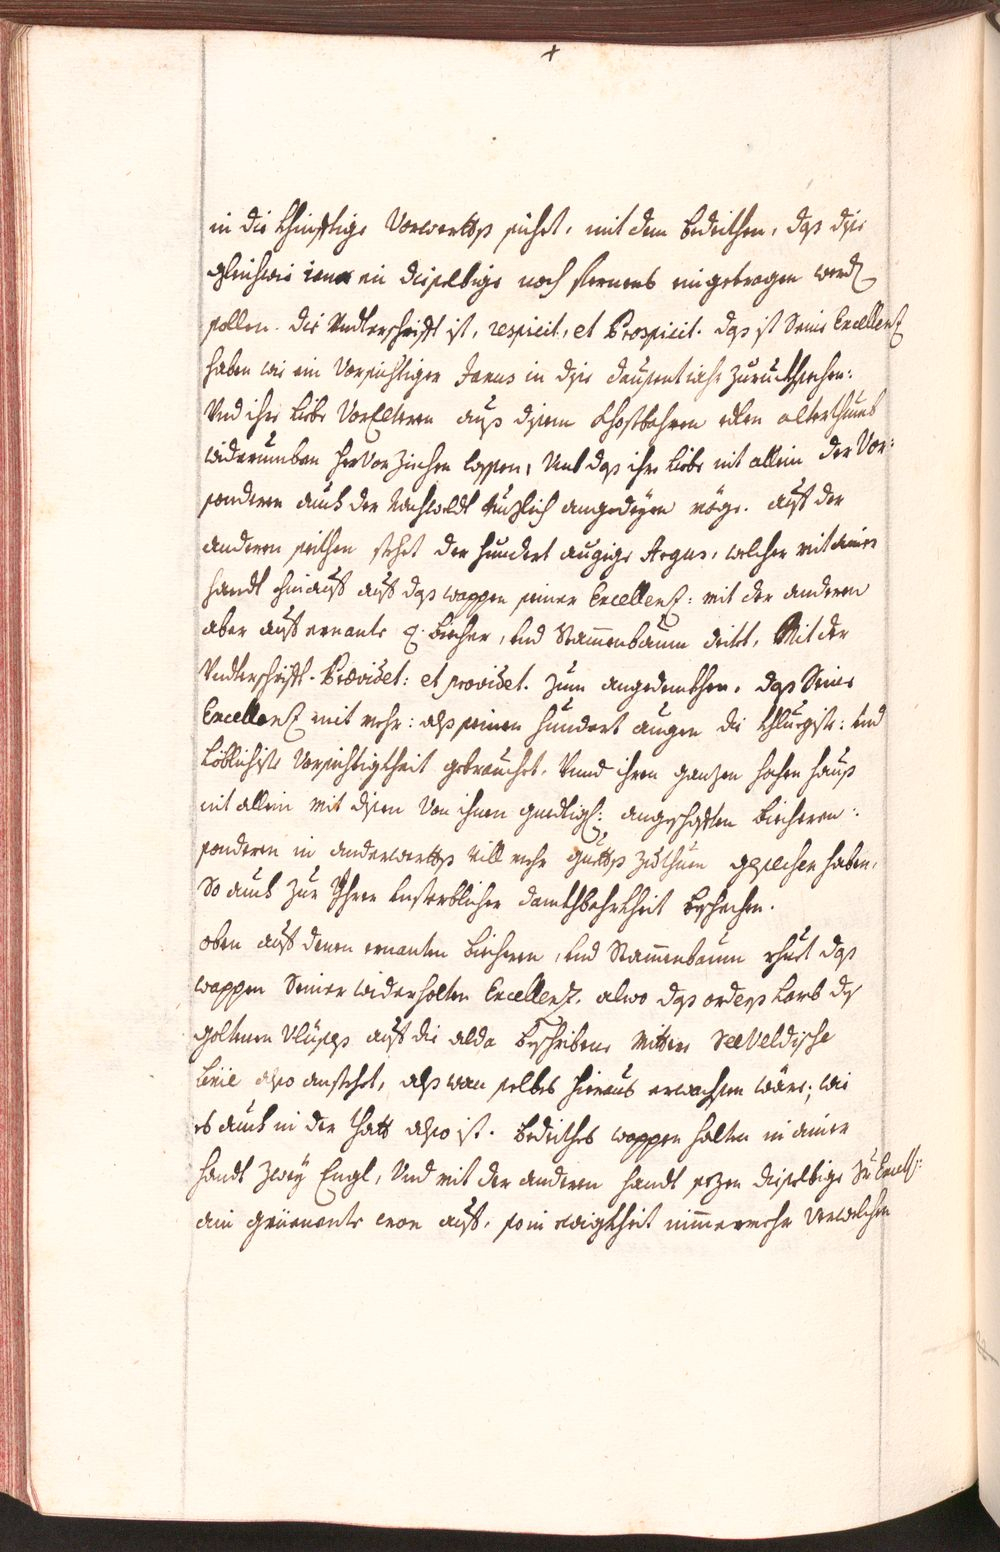 +
in die khinfftige Vorwerttß sichet, mit dem bedeithen, daß dise
gleichwie iene in dieselbige noch fleruens eingetragen werdn
sollen. die Underschrifft ist, respicit, et Prospicit. daß ist Seine Excellenz
haben wie ein Vorsichtiger Janus in dise dausent iahr zuruckhgesehen:
Und ihre liebe VorElteren auß disem khostbahren edlen alterthumb
widerumben herVor ziehen lassen, Und daß ihre liebe nit allein der Vor-
sonderen auch der Nachweldt Nuzlich angedeyen möge. auf der
anderen seithen stehet der hundert augige Argus, welcher mit ainer
handt hinauf auf daß wappen seiner Excellenz: mit der anderen
aber auf ernante biecher, und Stammenbaum deitet, Mit der
Underschrifft. Prævidet: et providet. zum angedenkhen, daß Seine
Excellenz mit mehr: alß seinen hundert augen die khluegiste: und
Löblichiste Vorsichtigkheit gebrauchet, Unnd ihren ganzen hohen hauß
nit allein mit disen Von ihnen gnedigl: angeschafften biecheren:
sonderen in anderwerttß vill mehr guettß zuthuen gesuechen haben,
So auch zur Ihrer unsterblichen dankhbahrkheit beschechen.
oben auf denen ernanten biecheren, und Stammenbaum rhuet daß
wappen Seiner widerholten Excellenz. alwo daß ordenß band deß
goltenen Vlüsseß auf die alda beschribene Mittere Seeveldische
Linie also anstehet, alß wan selbes hieraus erwachsen wäre; wie
es auch in der thatt also ist. bedeithes wappen halten in ainer
handt zwey Engl, Und mit der anderen handt sezen dieselbige
ain grienente cron auf, so in ewigkheit nimmermehr Verwelchen